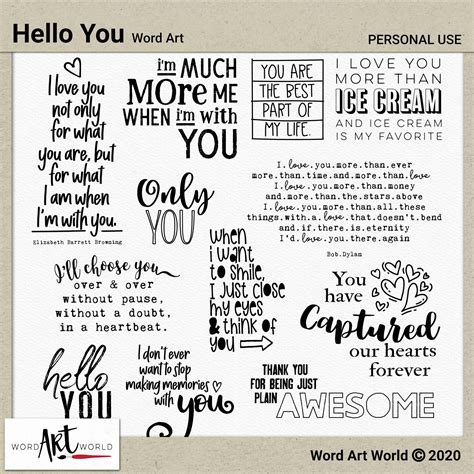 Hello You Word Art
PERSONAL USE
I love you
not only
for what
you are, but
for what
I am when
I'm with you.
Elizabeth Barrett Browning
i'm MUCH
MORE ME
WHEN i'm with
YOU
YOU ARE
THE BEST
PART OF
MY LIFE.
I LOVE YOU
MORE THAN
ICE CREAM
AND ICE CREAM
IS MY FAVORITE
Only
YOU
I.love.you.more.than.ever
more.than.time.and.more.than.love
I.love.you.more.than.money
and.more.than.the.stars.above
I.love.you.more.than.all.these
things.with.a.love.that.doesn't.bend
and.if.there.is.eternity
I'd.love.you.there.again
Bob.Dylan
I'll choose you
over & over
without pause,
without a doubt,
in a heartbeat.
when
i want
to smile,
I just close
my eyes
& think of
you
You
have
Captured
our hearts
forever
hello
YOU
I don't ever
want to stop
making memories
with
you
THANK YOU
FOR BEING JUST
PLAIN AWESOME
WORD ART WORLD
Word Art World © 2020